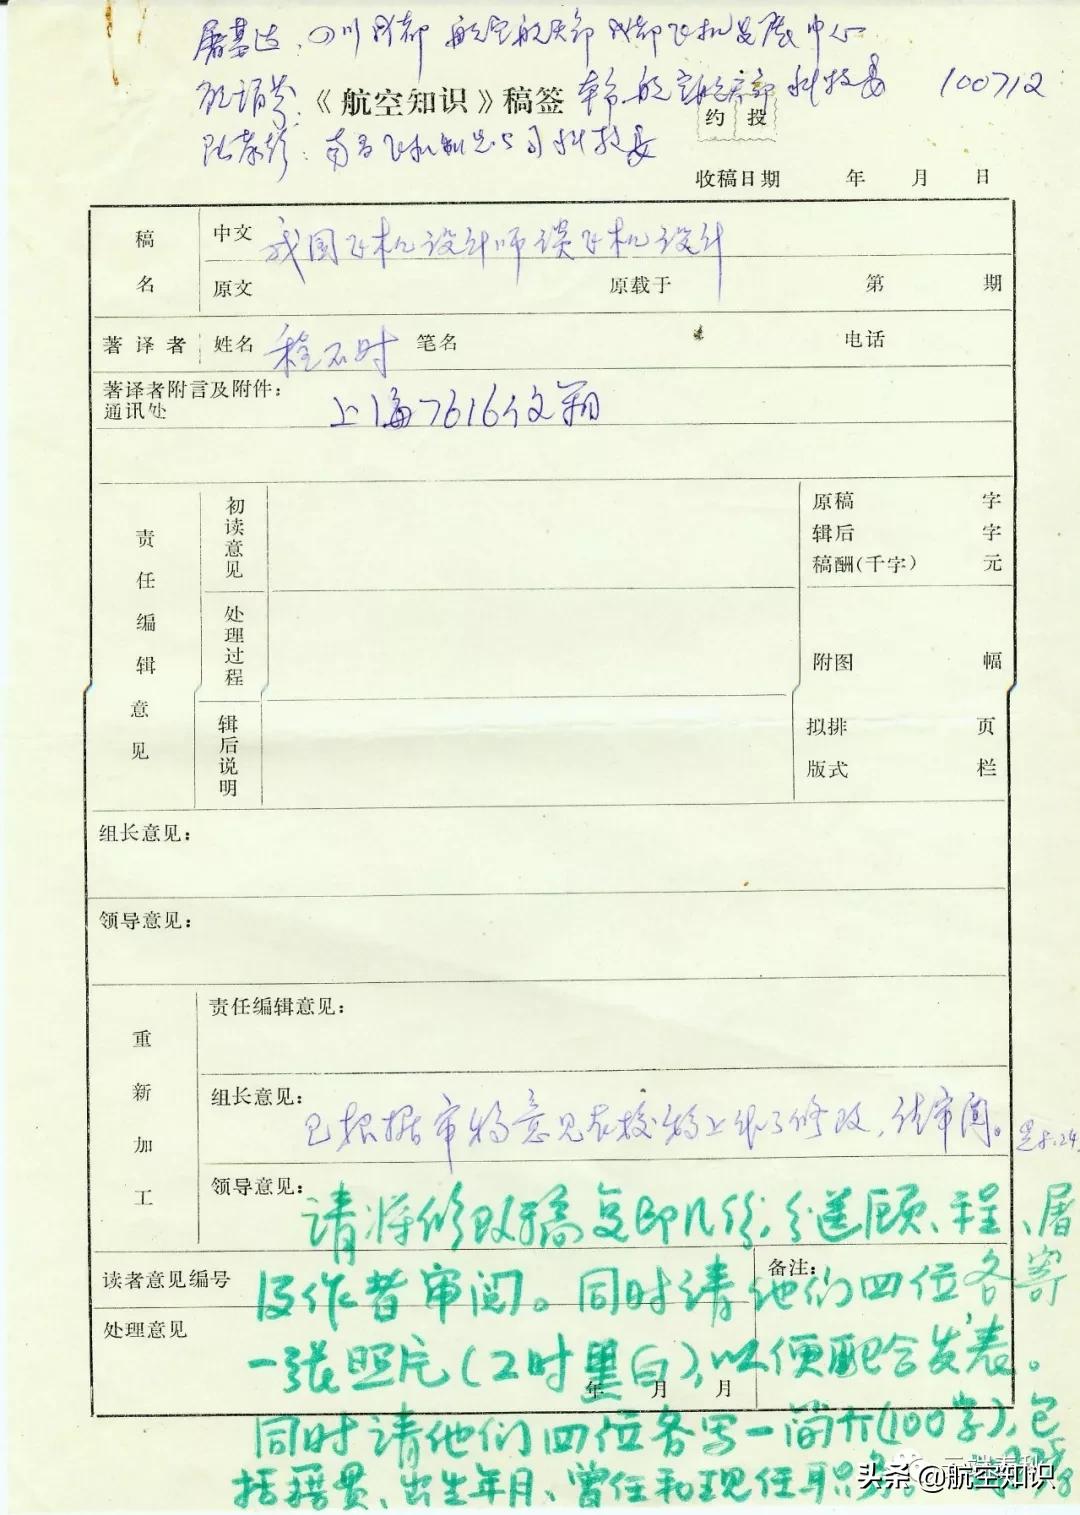 屠基达、四川成都 航空航天部 成都飞机发展中心
顾诵芬 《航空知识》稿签 北京 航空航天部 科技委 100712
陆孝彭：南昌飞机制造公司科技委
约 投
收稿日期 年 月 日
稿名 中文 我国飞机设计师谈飞机设计
原文 原载于 第 期
著译者 姓名 程不时 笔名 电话
著译者附言及附件：
通讯处 上海7616信箱
责任编辑意见
初读意见
原稿 字
辑后 字
稿酬(千字) 元
处理过程
附图 幅
辑后说明
拟排 页
版式 栏
组长意见：
领导意见：
重新加工
责任编辑意见：
组长意见：
已根据审稿意见在校稿上做了修改，请审阅。 5.24.
领导意见：
请将修改稿复印几份，分送顾、程、屠
读者意见编号 备注：
及作者审阅。同时请他们四位各寄
处理意见
一张照片(2吋黑白)，以便配合发表。
年 月 日
同时请他们四位各写一简介(100字)，包
括籍贯、出生年月、曾任和现任职
头条 @航空知识